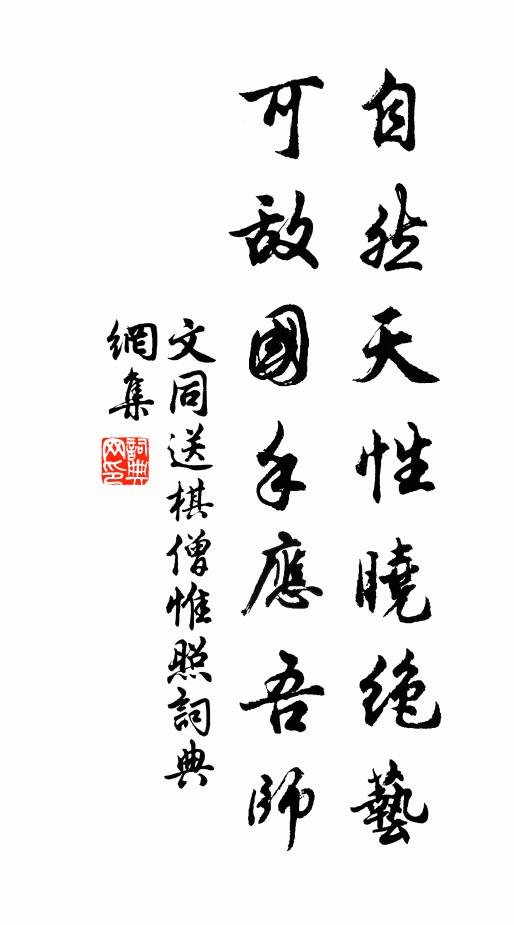 自然天性曉絶藝
可敵國手應吾師
文同送棋僧惟照詞典
網集
詞典
网印